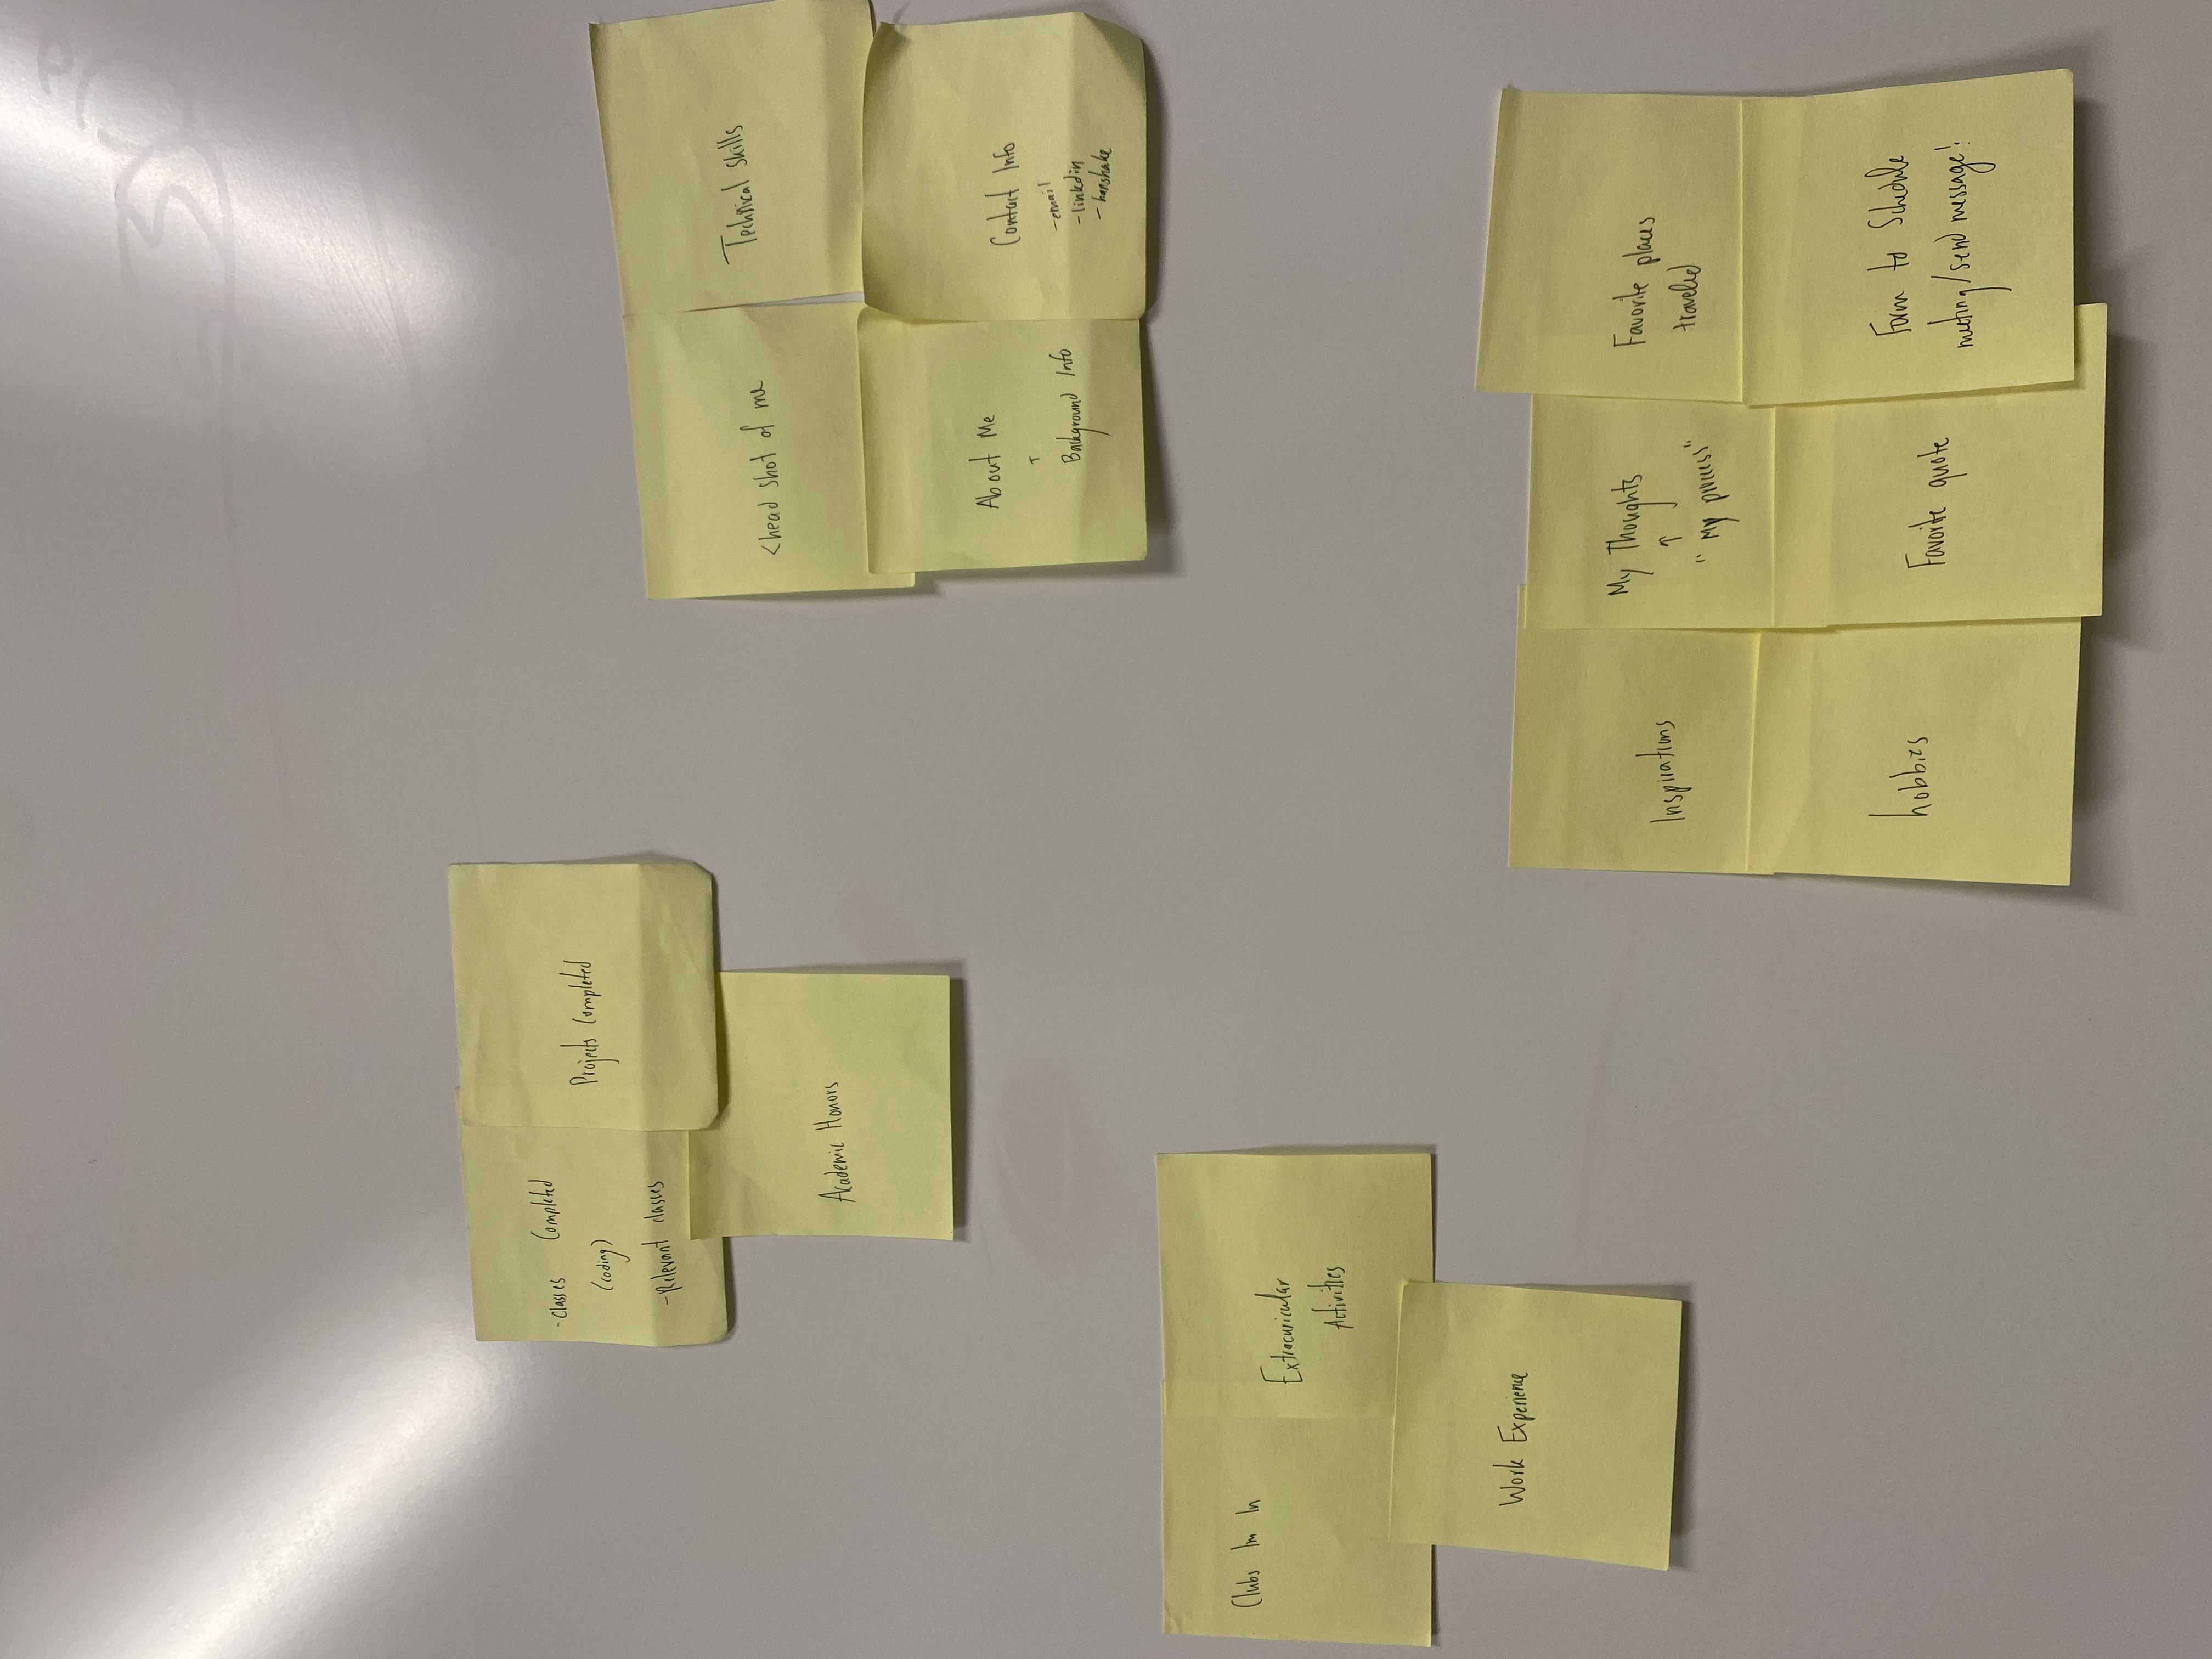 -Classes Completed
(coding)
-Relevant classes
Projects Completed
Academic Honors
<head shot of me
Technical skills
About Me
Background Info
Contact Info
-email
-linkdin
-hanshake
Clubs Im In
Extracuricular
Activities
Work Experience
Inspirations
My Thoughts
↑
"My process"
Favorite places
traveled
hobbies
Favorite quote
Form to Schedule
meeting/send message!